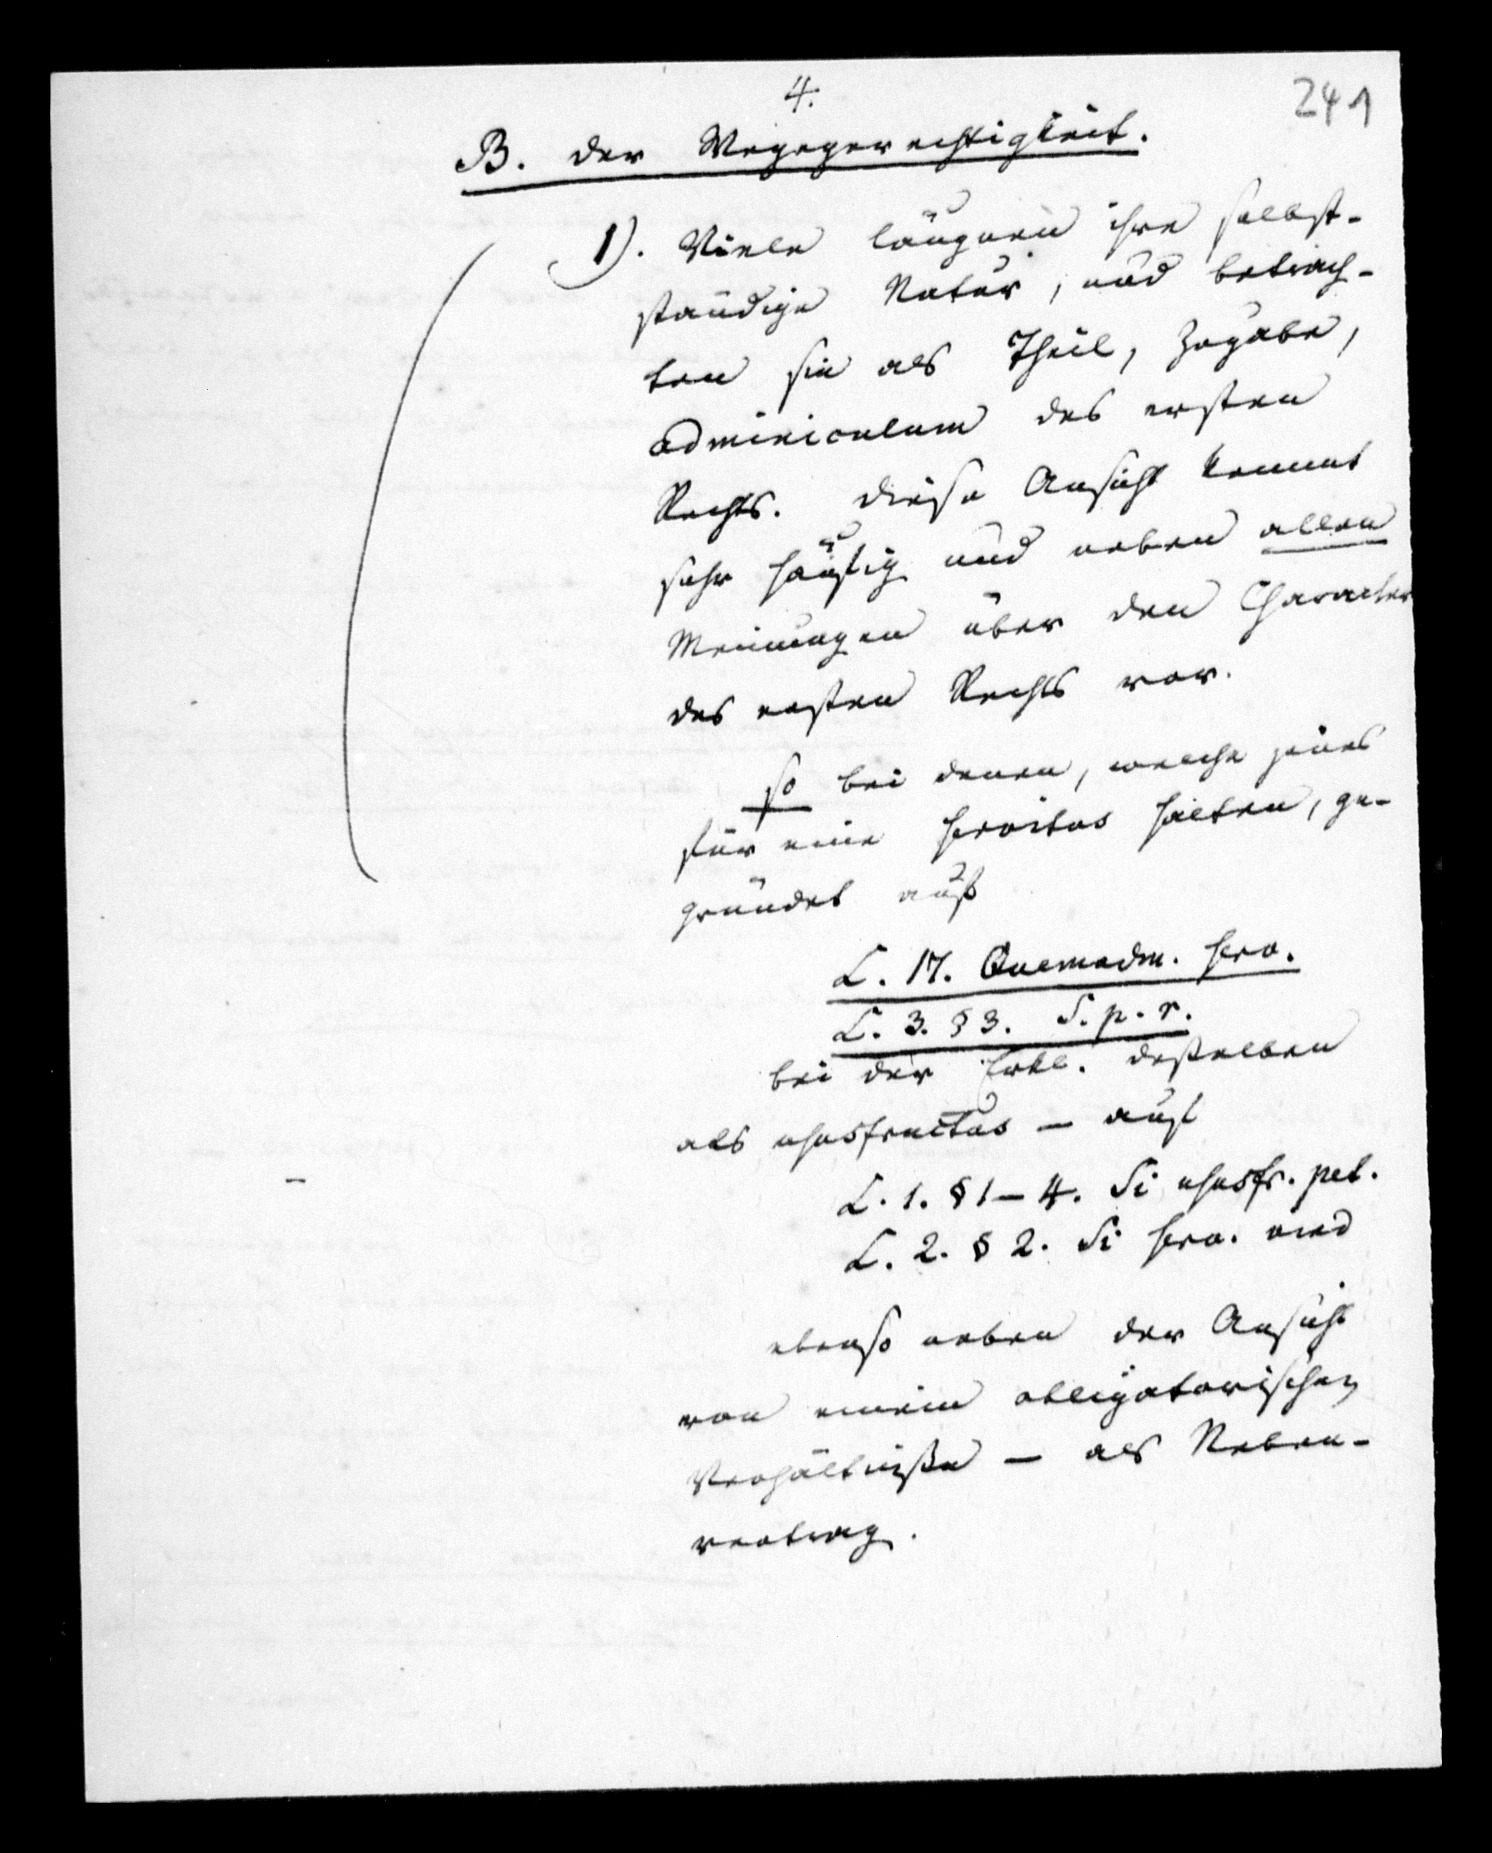 4.
241
B. der Wegegerechtigkeit.
1). Viele läugnen ihre selbst-
ständige Natur, und betrach-
ten sie als Theil, Zugabe,
adminiculum des ersten
Rechts. Diese Ansicht kommt
sehr häufig und neben allen
Meinungen über den Character
des ersten Rechts vor.
so bei denen, welche jenes
für eine servitus halten, ge-
gründet auf
L. 17. Quemadm. serv.
L. 3. § 3. S. p. r.
bei der Erkl. desselben
als ususfructus – auf
L. 1. § 1–4. Si ususfr. pet.
L. 2. § 2. Si serv. und
ebenso neben der Ansicht
von einem obligatorischen
Verhältniße – als Neben-
vertrag.